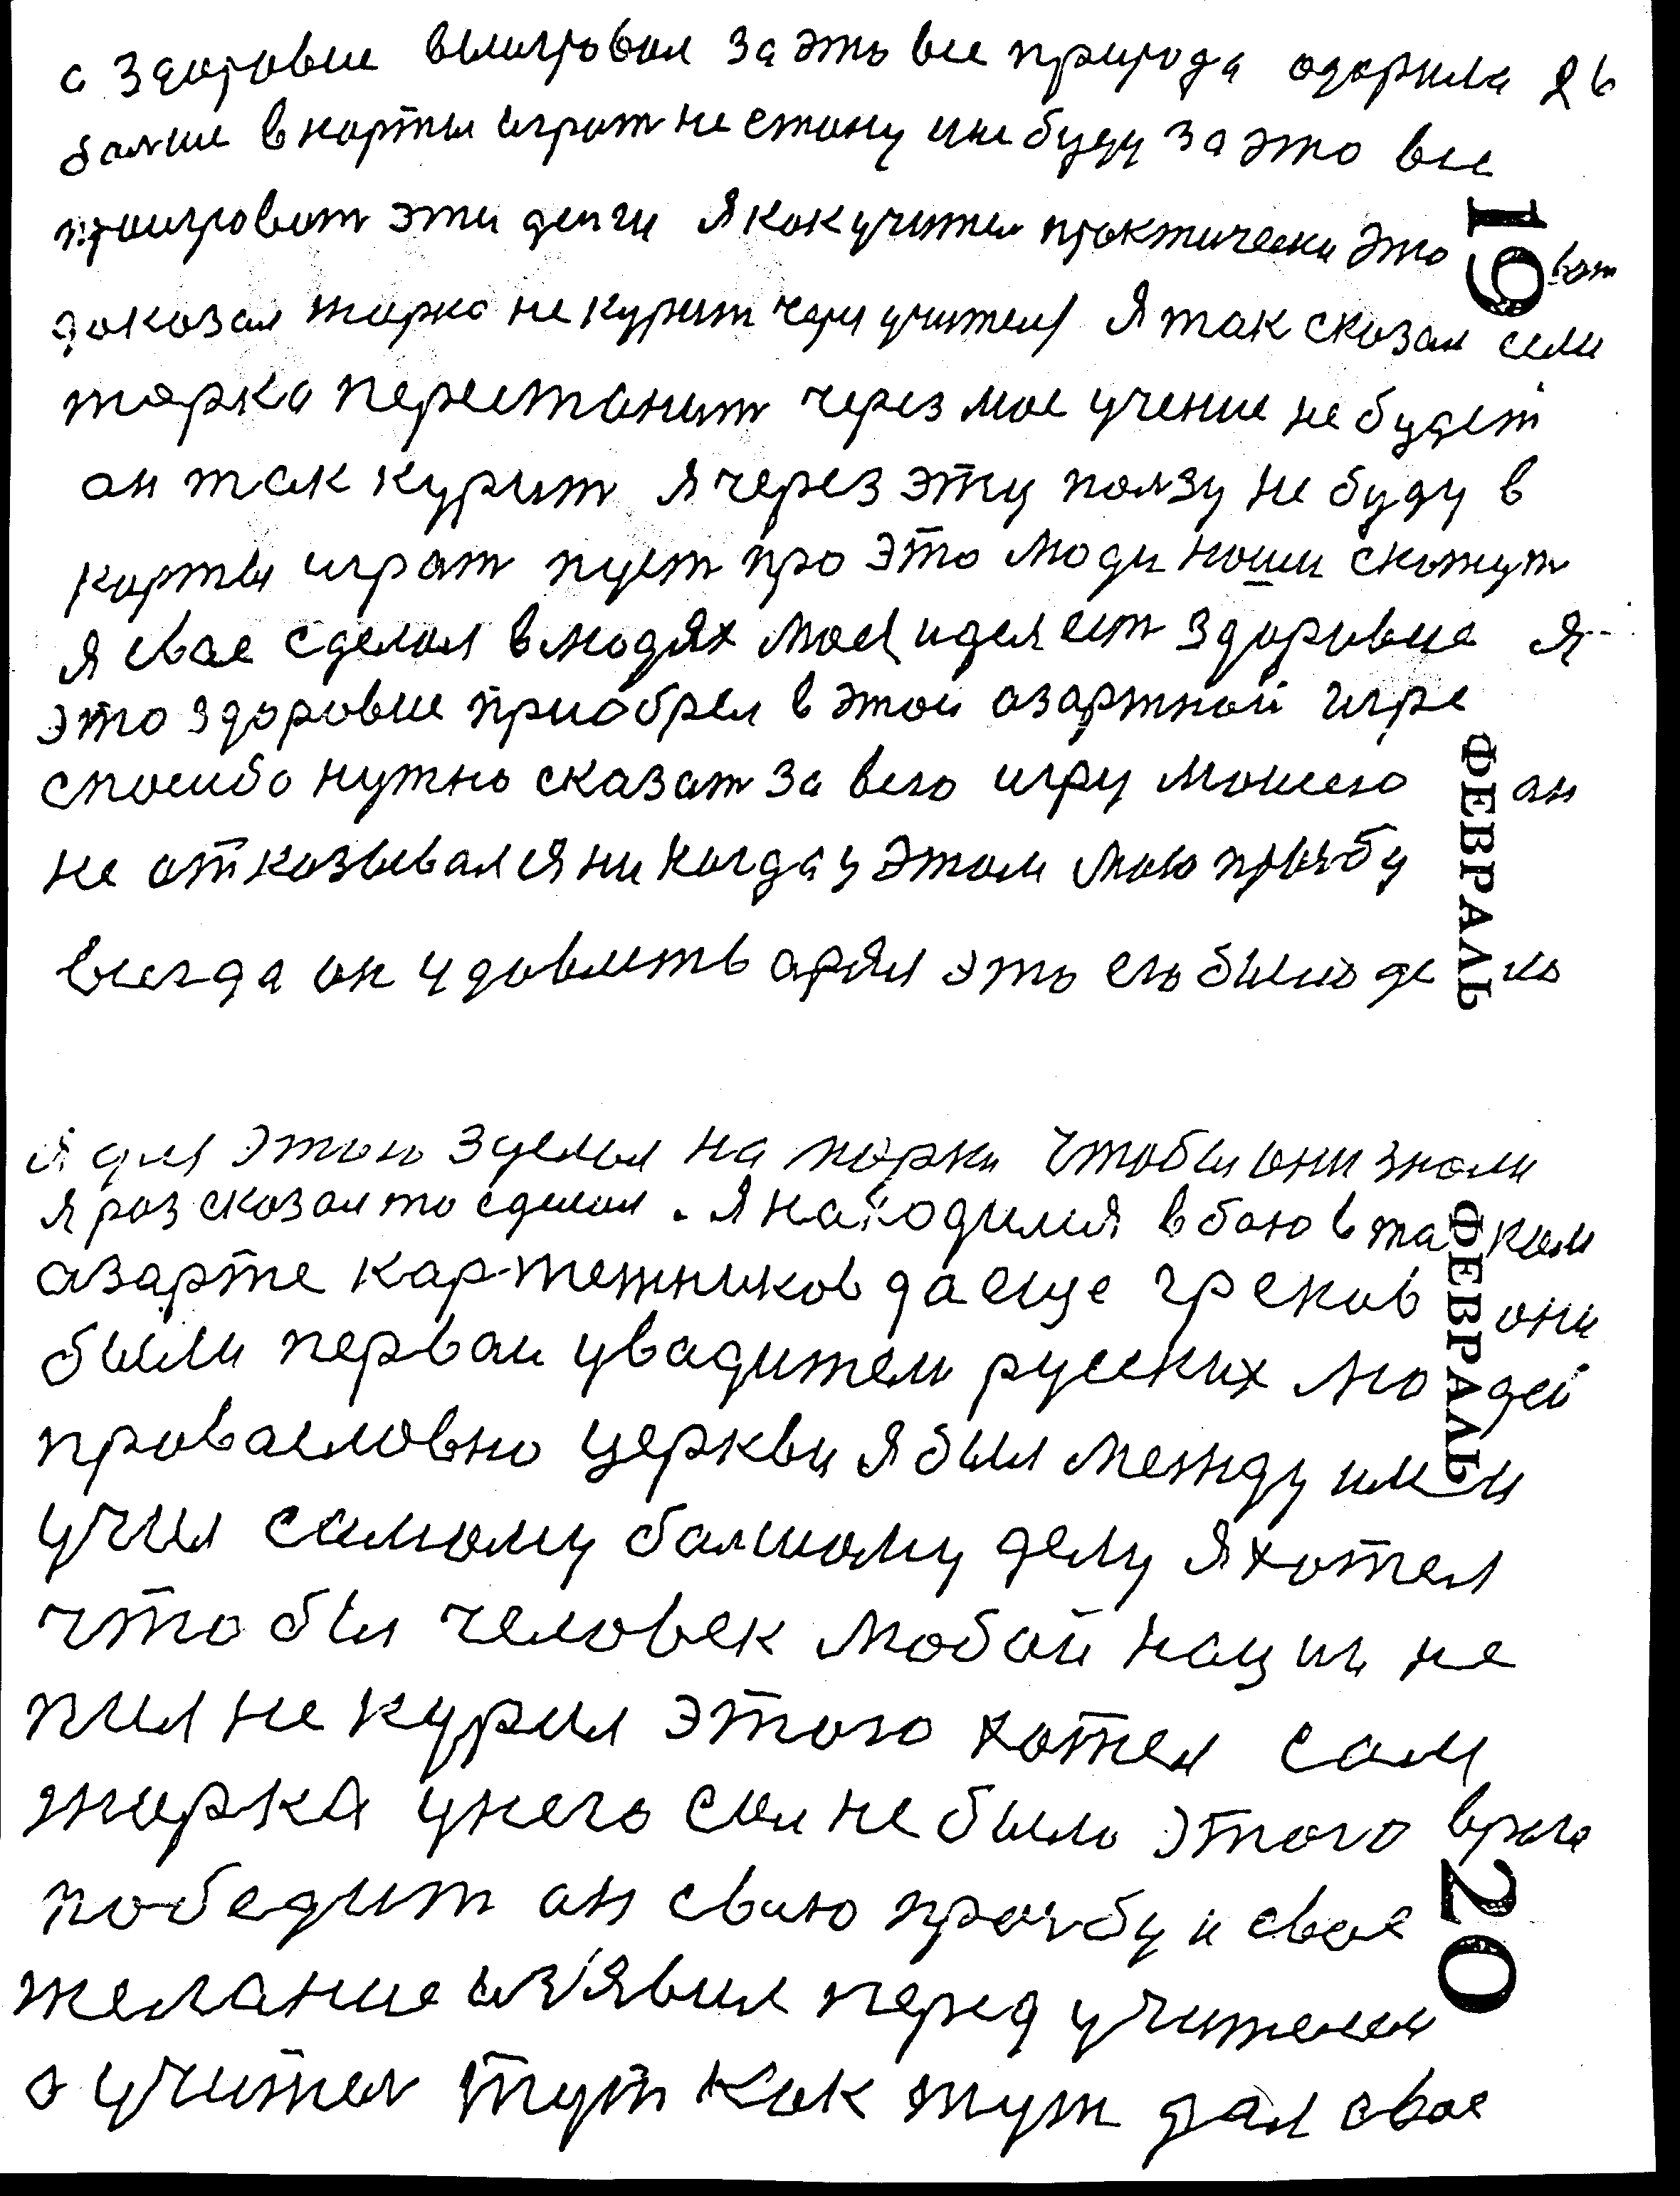 а здоровие выигровал за это все природа одорила 26
болше в карты играт не стану и не буду за это все
проигроват эти денги я как учител практически это вот
доказал жорка не курит через учителя я так сказал если
жорка перестанит через мое учение не будет
он так курит я через эту ползу не буду в
карты играт пуст про это люди наши скажут
я свое сделал в людях моя идея ест здоровие я
это здоровие приобрел в этой азартной игре
спосибо нужно сказат за всю игру мошею он
не отказывался никогда у этом мою прозбу
всегда он удовлетворял это его было дело
19 ФЕВРАЛЬ
я для этого зделал на жорки чтобы они знали
я раз сказал то сделал. я находился в бою в таком
азарте картежников да еще греков они
были первои увадители руских людей
провасловно церкви я был между ими
учил самому болшому делу я хотел
что бы человек любой нации не
пил не курил этого хотел сам
жорка у него сил не было этого врага
победит он свою прозбу и свое
желание из'явил перед учителем
а учител тут как тут дал свое
ФЕВРАЛЬ 20